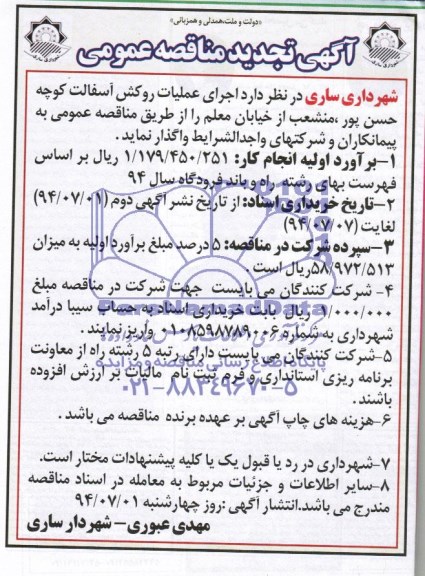 «دولت و ملت،همدلی و همزبانی»
آگهی تجدید مناقصه عمومی
شهرداری ساری
شهرداری ساری
شهرداری ساری در نظر دارد اجرای عملیات روکش آسفالت کوچه
حسن پور ،منشعب از خیابان معلم را از طریق مناقصه عمومی به
پیمانکاران و شرکتهای واجدالشرایط واگذار نماید .
۱-برآورد اولیه انجام کار: ۱/۱۷۹/۴۵۰/۲۵۱ ریال بر اساس
فهرست بهای رشته راه و باند فرودگاه سال ۹۴
۲-تاریخ خریداری اسناد: از تاریخ نشر آگهی دوم (۹۴/۰۷/۰۱)
لغایت (۹۴/۰۷/۰۷)
۳-سپرده شرکت در مناقصه: ۵ درصد مبلغ برآورد اولیه به میزان
۵۸/۹۷۲/۵۱۳ریال است .
۴- شرکت کنندگان می بایست جهت شرکت در مناقصه مبلغ
۱/۰۰۰/۰۰۰ ریال بابت خریداری اسناد به حساب سیبا درآمد
شهرداری به شماره ۰۱۰۸۵۹۸۷۸۹۰۰۶ واریز نمایند .
۵-شرکت کنندگان می بایست دارای رتبه ۵ رشته راه از معاونت
برنامه ریزی استانداری و فرم ثبت نام مالیات بر ارزش افزوده
باشند .
۶-هزینه های چاپ آگهی بر عهده برنده مناقصه می باشد .
۷-شهرداری در رد یا قبول یک یا کلیه پیشنهادات مختار است.
۸-سایر اطلاعات و جزئیات مربوط به معامله در اسناد مناقصه
مندرج می باشد.انتشار آگهی :روز چهارشنبه ۹۴/۰۷/۰۱
مهدی عبوری- شهردار ساری
پایگاه اطلاع رسانی مناقصه و مزایده
۰۲۱-۸۸۳۴۹۶۷۰-۵